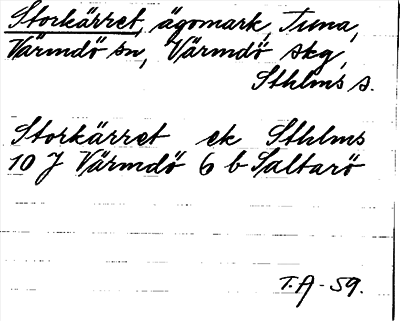 Storkärret, ägomark, Tuna,
Värmdö sn, Värmdö skg,
Sthlms s.
Storkärret ek Sthlms
10 J Värmdö 6 b Saltarö
T.A - 59.